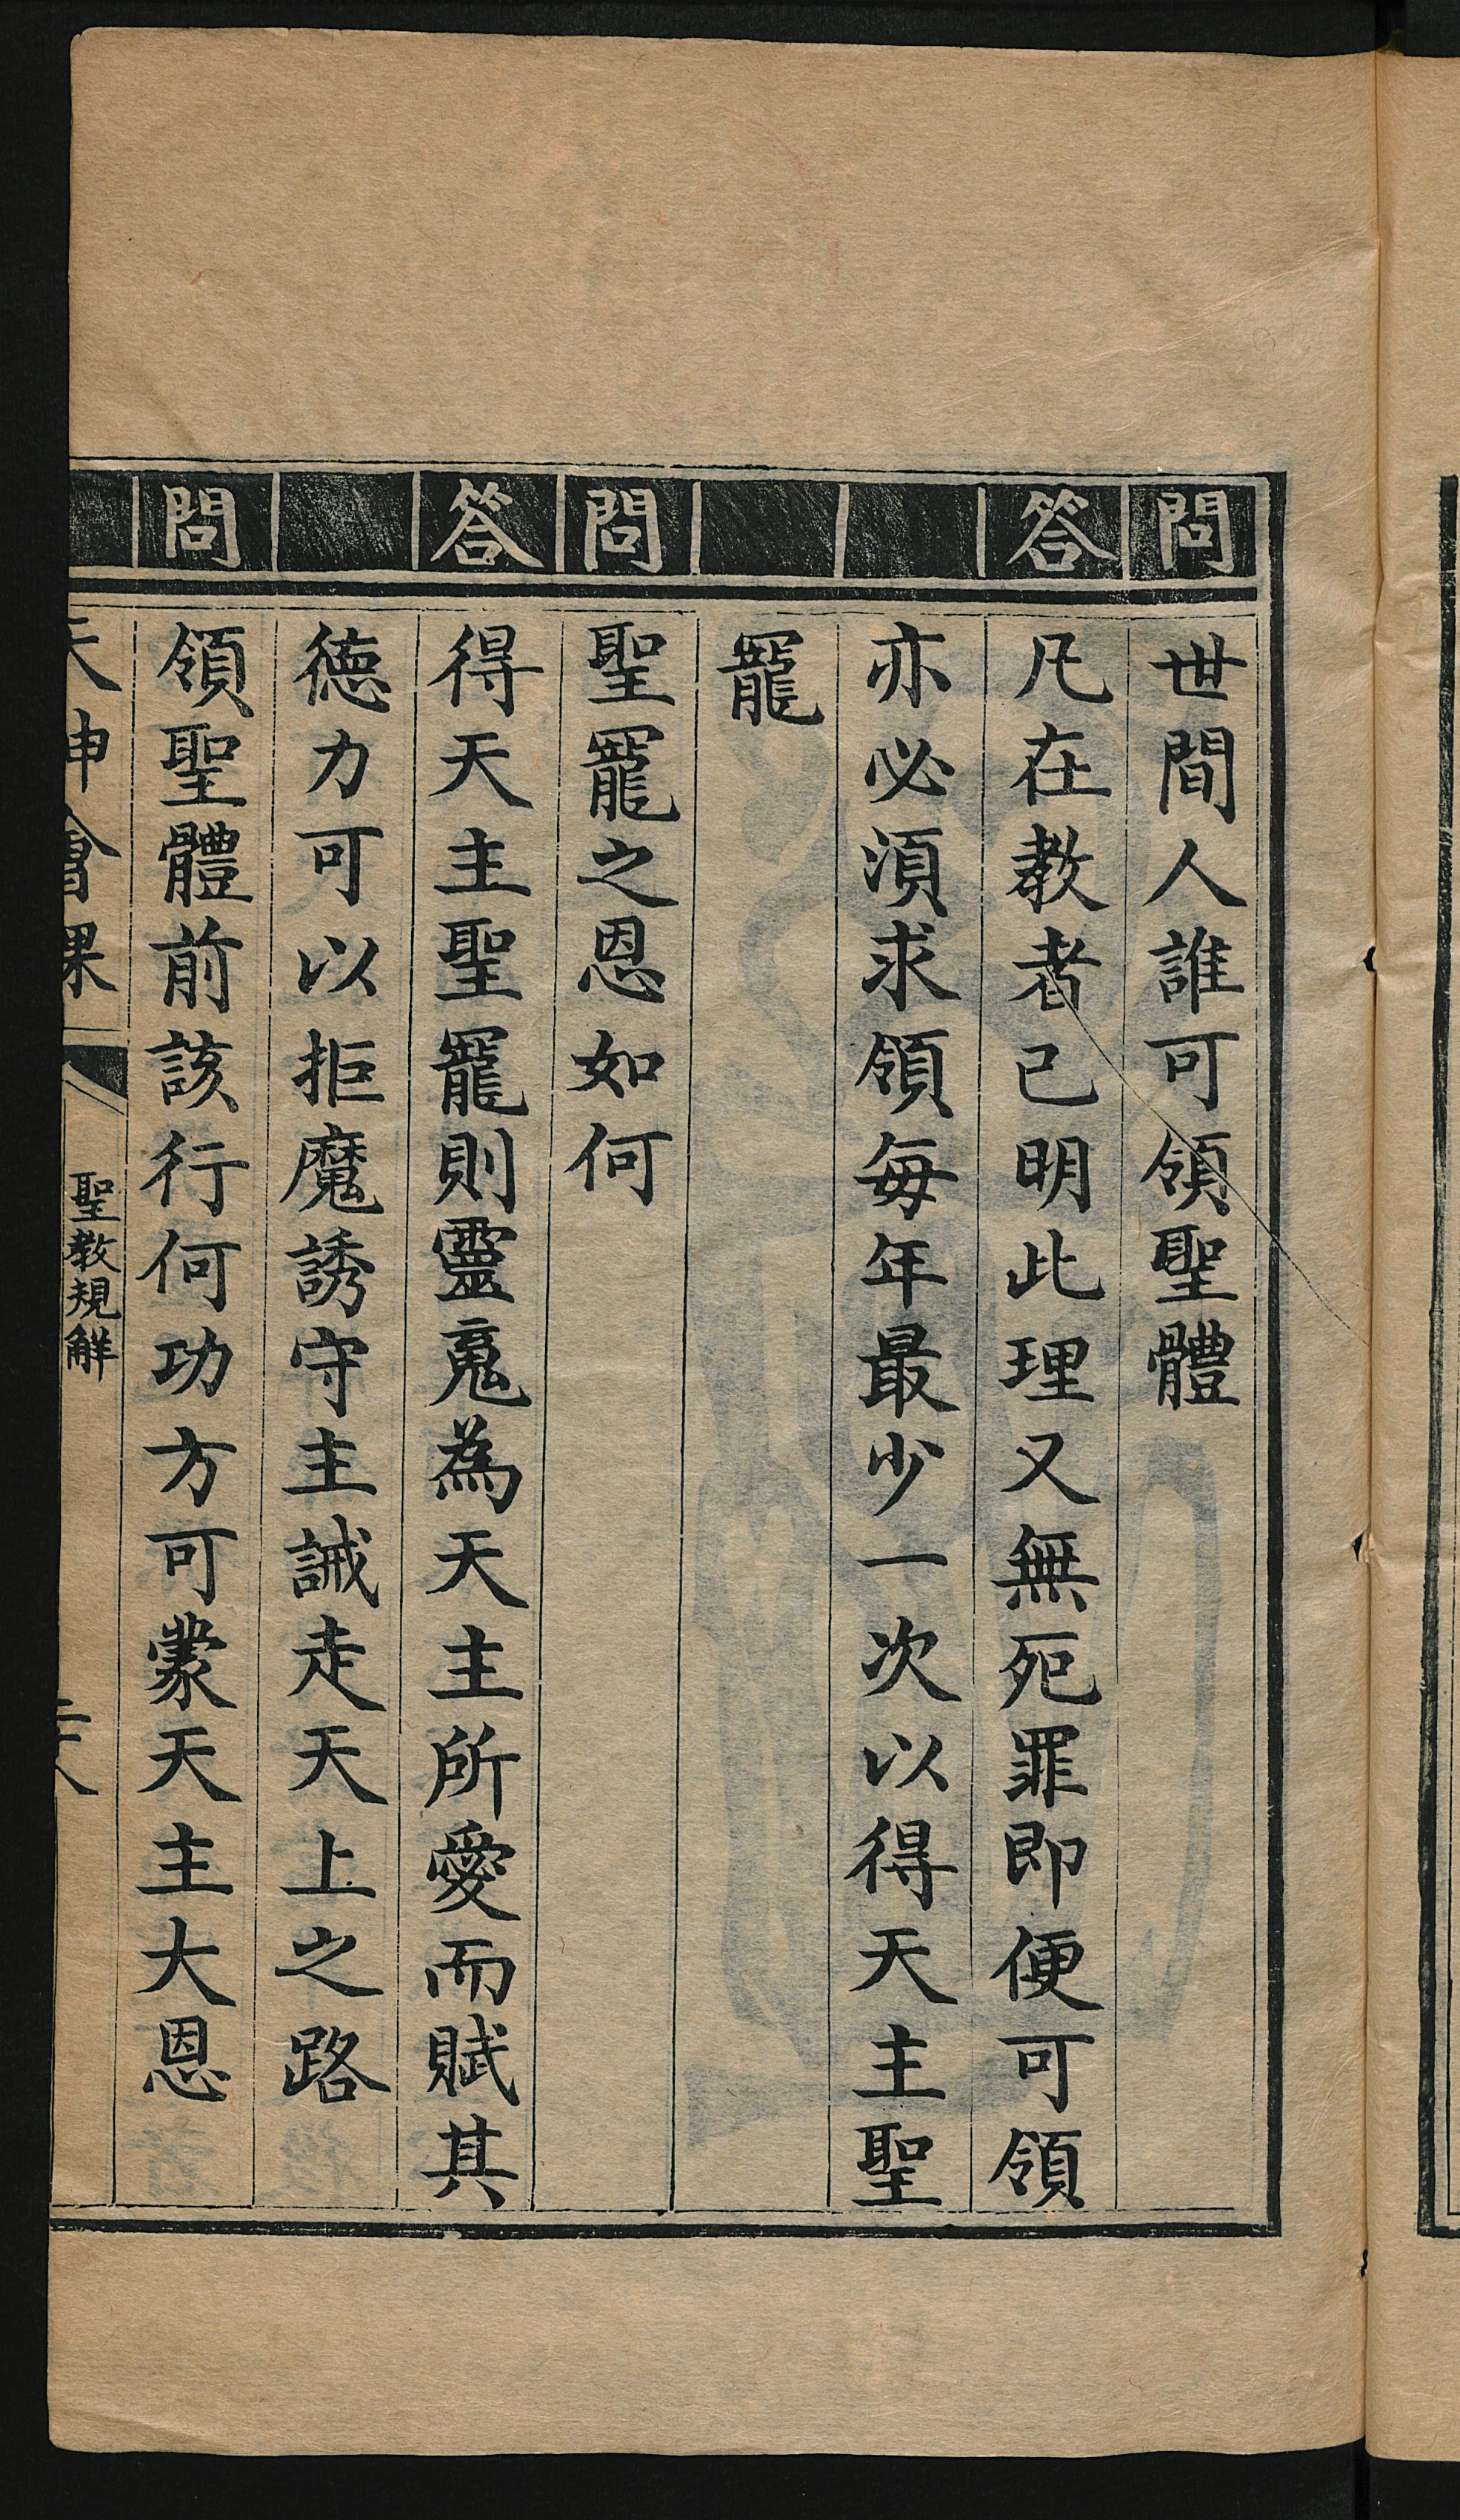 問 世間人誰可領聖體
答 凡在教者已明此理又無死罪即便可領
亦必須求領每年最少一次以得天主聖
寵
問 聖寵之恩如何
答 得天主聖寵則靈魂為天主所愛而賦其
德力可以拒魔誘守主誡走天上之路
問 領聖體前該行何功方可蒙天主大恩
天神會課 聖教規解